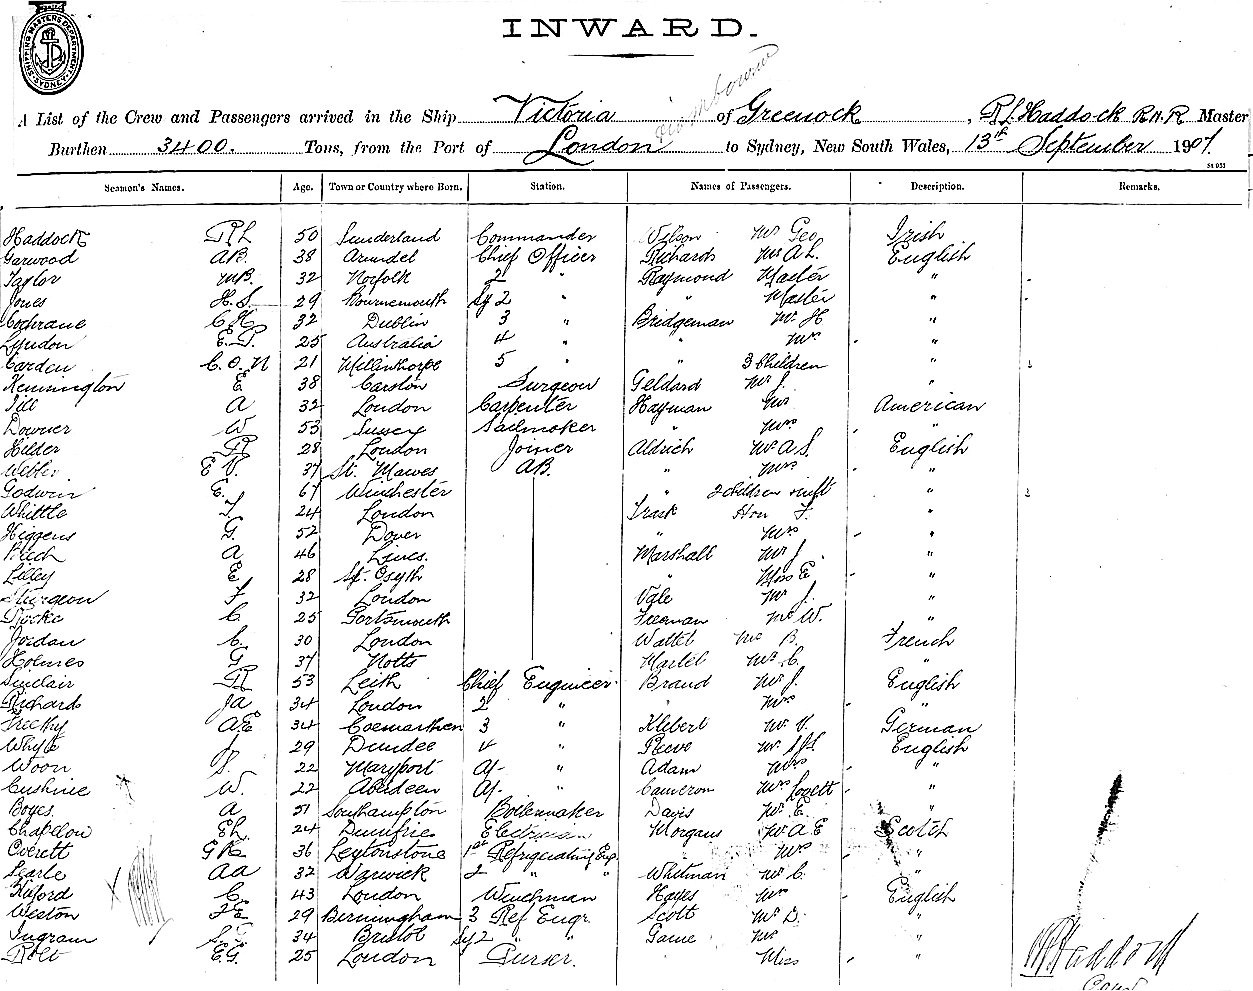 SHIPPING MASTERS DEPARTMENT SYDNEY
INWARD.
A List of the Crew and Passengers arrived in the Ship Victoria of Greenock, R L Haddock R.N.R Master
Burthen 3400. Tons, from the Port of London to Sydney, New South Wales, 13th September 1907.
Seamen's Names. Age. Town or Country where Born. Station. Names of Passengers. Description. Remarks.
Haddock RL 50 Sunderland Commander Wilson Mr Geo Irish
Garwood AB. 38 Arundel Chief Officer Richards Mr A L. English
Taylor MB. 32 Norfolk 2 Raymond Master "
Jones H.S. 29 Bournemouth 2 " " Master "
Cochrane C H. 32 Dublin 3 " Bridgeman Mr H "
Lyndon 25 Australia 4 " " Mrs "
Carden C.O.N 21 Millinthorpe 5 " " 3 Children "
Kennington E 38 Carston Surgeon Geldard Mr J. "
Ill A 32 London Carpenter Hayman Mr American
Downer W 53 Sussex Sailmaker " Mrs "
Hilder R 28 London Joiner Aldrich Mr A S. English
E V. 37 St. Mawes AB. " Mrs "
Godwin E. 67 Winchester " 2 children "
Whittle 24 London Trask Hon F. "
Higgens G. 52 Dover " Mrs "
A 46 Lincs. Marshall Mr J. "
Lilley E 28 St. Osyth " Miss E "
Sturgeon F 32 London Vale Mr J. "
C. 25 Portsmouth Freeman Mr W. "
Jordan C. 30 London B. French
Holmes G 37 Notts Martel Mr C. "
Sinclair 53 Leith Chief Engineer Brand Mr J. English
Richards JA 34 London 2 " " Mrs "
AE 34 Coemarthen 3 " Klebert Mr V. German
Whyte J 29 Dundee 4 " Reeve English
Woon S. 22 Maryport " Adam Mrs "
Cushnie W. 22 Aberdeen " Cameron Mrs Lovett "
Boyes A 51 Southampton Boilermaker Davis Mr E. "
Chapelow EL. 24 Dumfries Electrician Morgans Mr A E Scotch
Everett 36 Leytonstone 1st Refrigerating Eng. " Mrs "
Searle AA 32 Warwick 2 " " Whitman Mr C. "
C. 43 London Winchman Hayes Mr English
Weston 29 Birmingham 3 Ref Engr. Scott Mr D. "
Ingram 34 Bristol 2 " " Game Mr "
E.G. 25 London Purser. " Miss "
Haddock